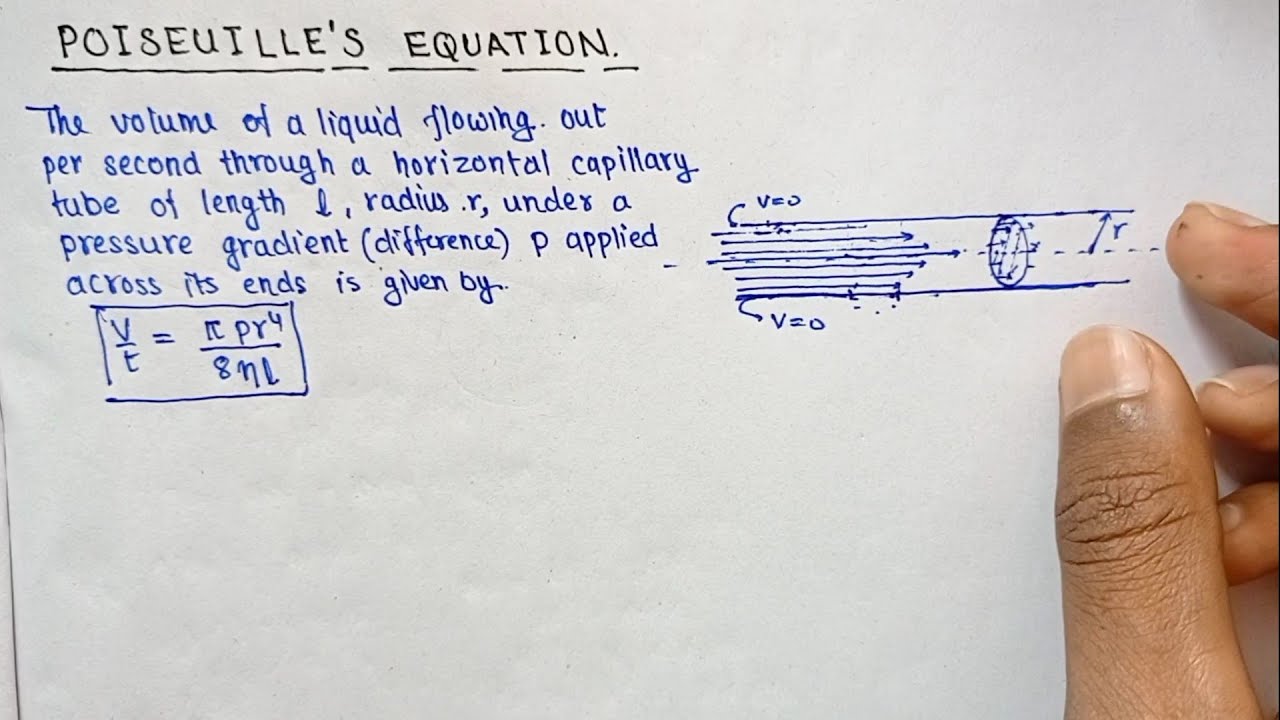 POISEUILLE'S EQUATION.
The volume of a liquid flowing. out
per second through a horizontal capillary
tube of length l, radius .r, under a
pressure gradient (difference) p applied
across its ends is given by.
V/t = πpr⁴/8ηl
V=0
r
V=0